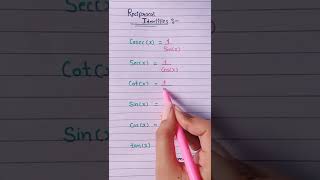 Reciprocal
Identities :-
Cosec(x) = 1/Sin(x)
Sec(x) = 1/Cos(x)
Cot(x) = 1
Sin(x) =
Cos(x) =
tan(x)